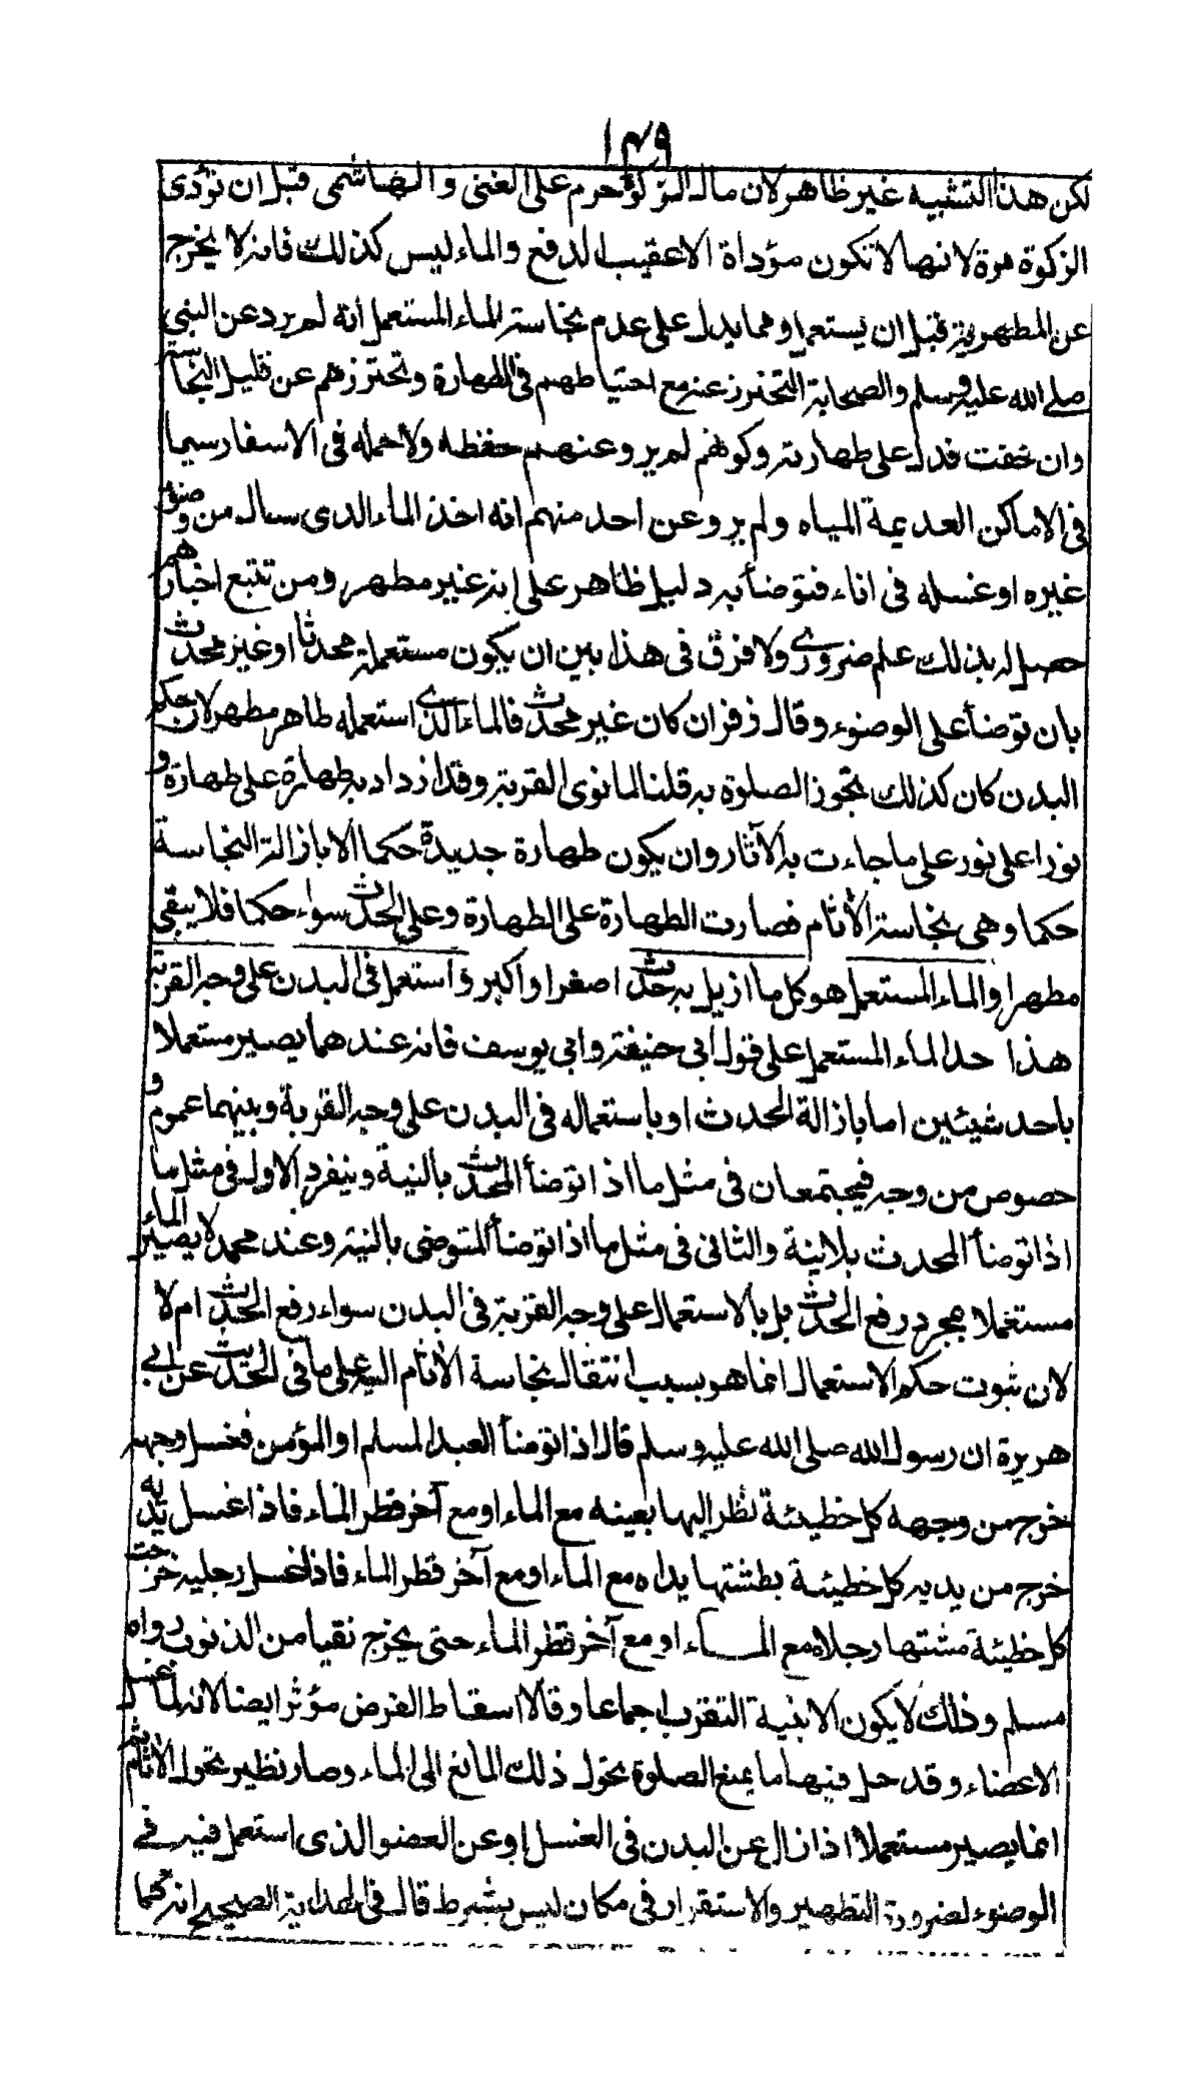 ١٤٩
لكن هذا التشبيه غير ظاهر لان مال الزكوة حرم على الغنى والهاشمى قبل ان تؤدى
الزكوة مرة لانها لا تكون مؤداة الا عقيب الدفع والماء ليس كذلك فانه لا يخرج
عن المطهرية قبل ان يستعمل ومما يدل على عدم نجاسة الماء المستعمل انه لم يرد عن النبي
صلى الله عليه وسلم والصحابة التحرز عنه مع احتياطهم فى الطهارة وتحترزهم عن قليل النجاسة
وان خفت فدل على طهارته وكونهم لم يرو عنهم حفظه ولا حمله فى الاسفار سيما
فى الاماكن العديمة المياه ولم يرو عن احد منهم انه اخذ الماء الذى سال من وضوء
غيره او غسله فى اناء فتوضأ به دليل ظاهر على انه غير مطهر ومن تتبع اخبارهم
حصل له بذلك علم ضرورى ولا فرق فى هذا بين ان يكون مستعمله محدثا او غير محدث
بان توضأ على الوضوء وقال زفر ان كان غير محدث فالماء الذى استعمله طاهر مطهر لان حكم
البدن كان كذلك بتجوز الصلوة به قلنا لما نوى القربة وقد ازداد به طهارة على طهارة و
نورا على نور على ما جاءت به الآثار وان يكون طهارة جديدة حكما الا بازالة النجاسة
حكما وهى نجاسة الأثام فصارت الطهارة على الطهارة وعلى الحدث سواء حكما فلا يبقى
مطهرا والماء المستعمل هو كل ما ازيل به حدث اصغر او اكبر او استعمل فى البدن على وجه القربة
هذا حد الماء المستعمل على قول ابى حنيفة وابى يوسف فانه عندهما يصير مستعملا
باحد شيئين اما بازالة الحدث او باستعماله فى البدن على وجه القربة وبينهما عموم و
خصوص من وجه فيجتمعان فى مثل ما اذا توضأ المحدث بالنية وينفرد الاول فى مثل ما
اذا توضأ المحدث بلا نية والثانى فى مثل ما اذا توضأ المتوضى بالنية وعند محمد لا يصير الماء
مستعملا بمجرد رفع الحدث بل بالاستعمال على وجه القربة فى البدن سواء رفع الحدث ام لا
لان ثبوت حكم الاستعمال انما هو بسبب انتقال نجاسة الأثام اليه على ما فى الحديث عن ابى
هريرة ان رسول الله صلى الله عليه وسلم قال اذا توضأ العبد المسلم او المؤمن فغسل وجهه
خرج من وجهه كل خطيئة نظر اليها بعينه مع الماء او مع آخر قطر الماء فاذا غسل يديه
خرج من يديه كل خطيئة بطشتها يداه مع الماء او مع آخر قطر الماء فاذا غسل رجليه خرجت
كل خطيئة مشتها رجلاه مع الماء او مع آخر قطر الماء حتى يخرج نقيا من الذنوب رواه
مسلم وذلك لا يكون الا بنية التقرب اجماعا وقالا اسقاط الفرض مؤثر ايضا لانه لما غسل
الاعضاء وقد حل فيها ما يمنع الصلوة تحول ذلك المانع الى الماء وصار نظير تحول الأثام ثم
انما يصير مستعملا اذا زال عن البدن فى الغسل او عن العضو الذى استعمل فيه فى
الوضوء لضرورة التطهير والاستقرار فى مكان ليس بشرط قال فى الهداية الصحيح انه كما